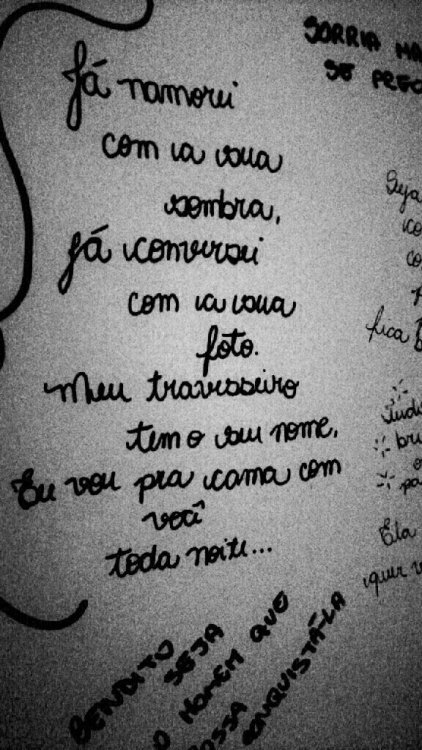 Já namorei
com a sua
sombra,
Já conversei
com a sua
foto.
Meu travesseiro
tem o seu nome,
Eu vou pra cama com
você
toda noite...
SORRIA
SE
Seja
fica
Ela
quer
BENDITO
SEJA
O HOMEM QUE
POSSA
CONQUISTÁ-LA